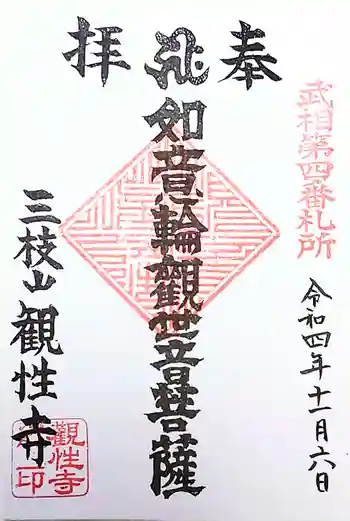 武相第四番札所
令和四年十一月六日
奉
如意輪觀世音菩薩
拝
三枝山観性寺
觀性寺
印